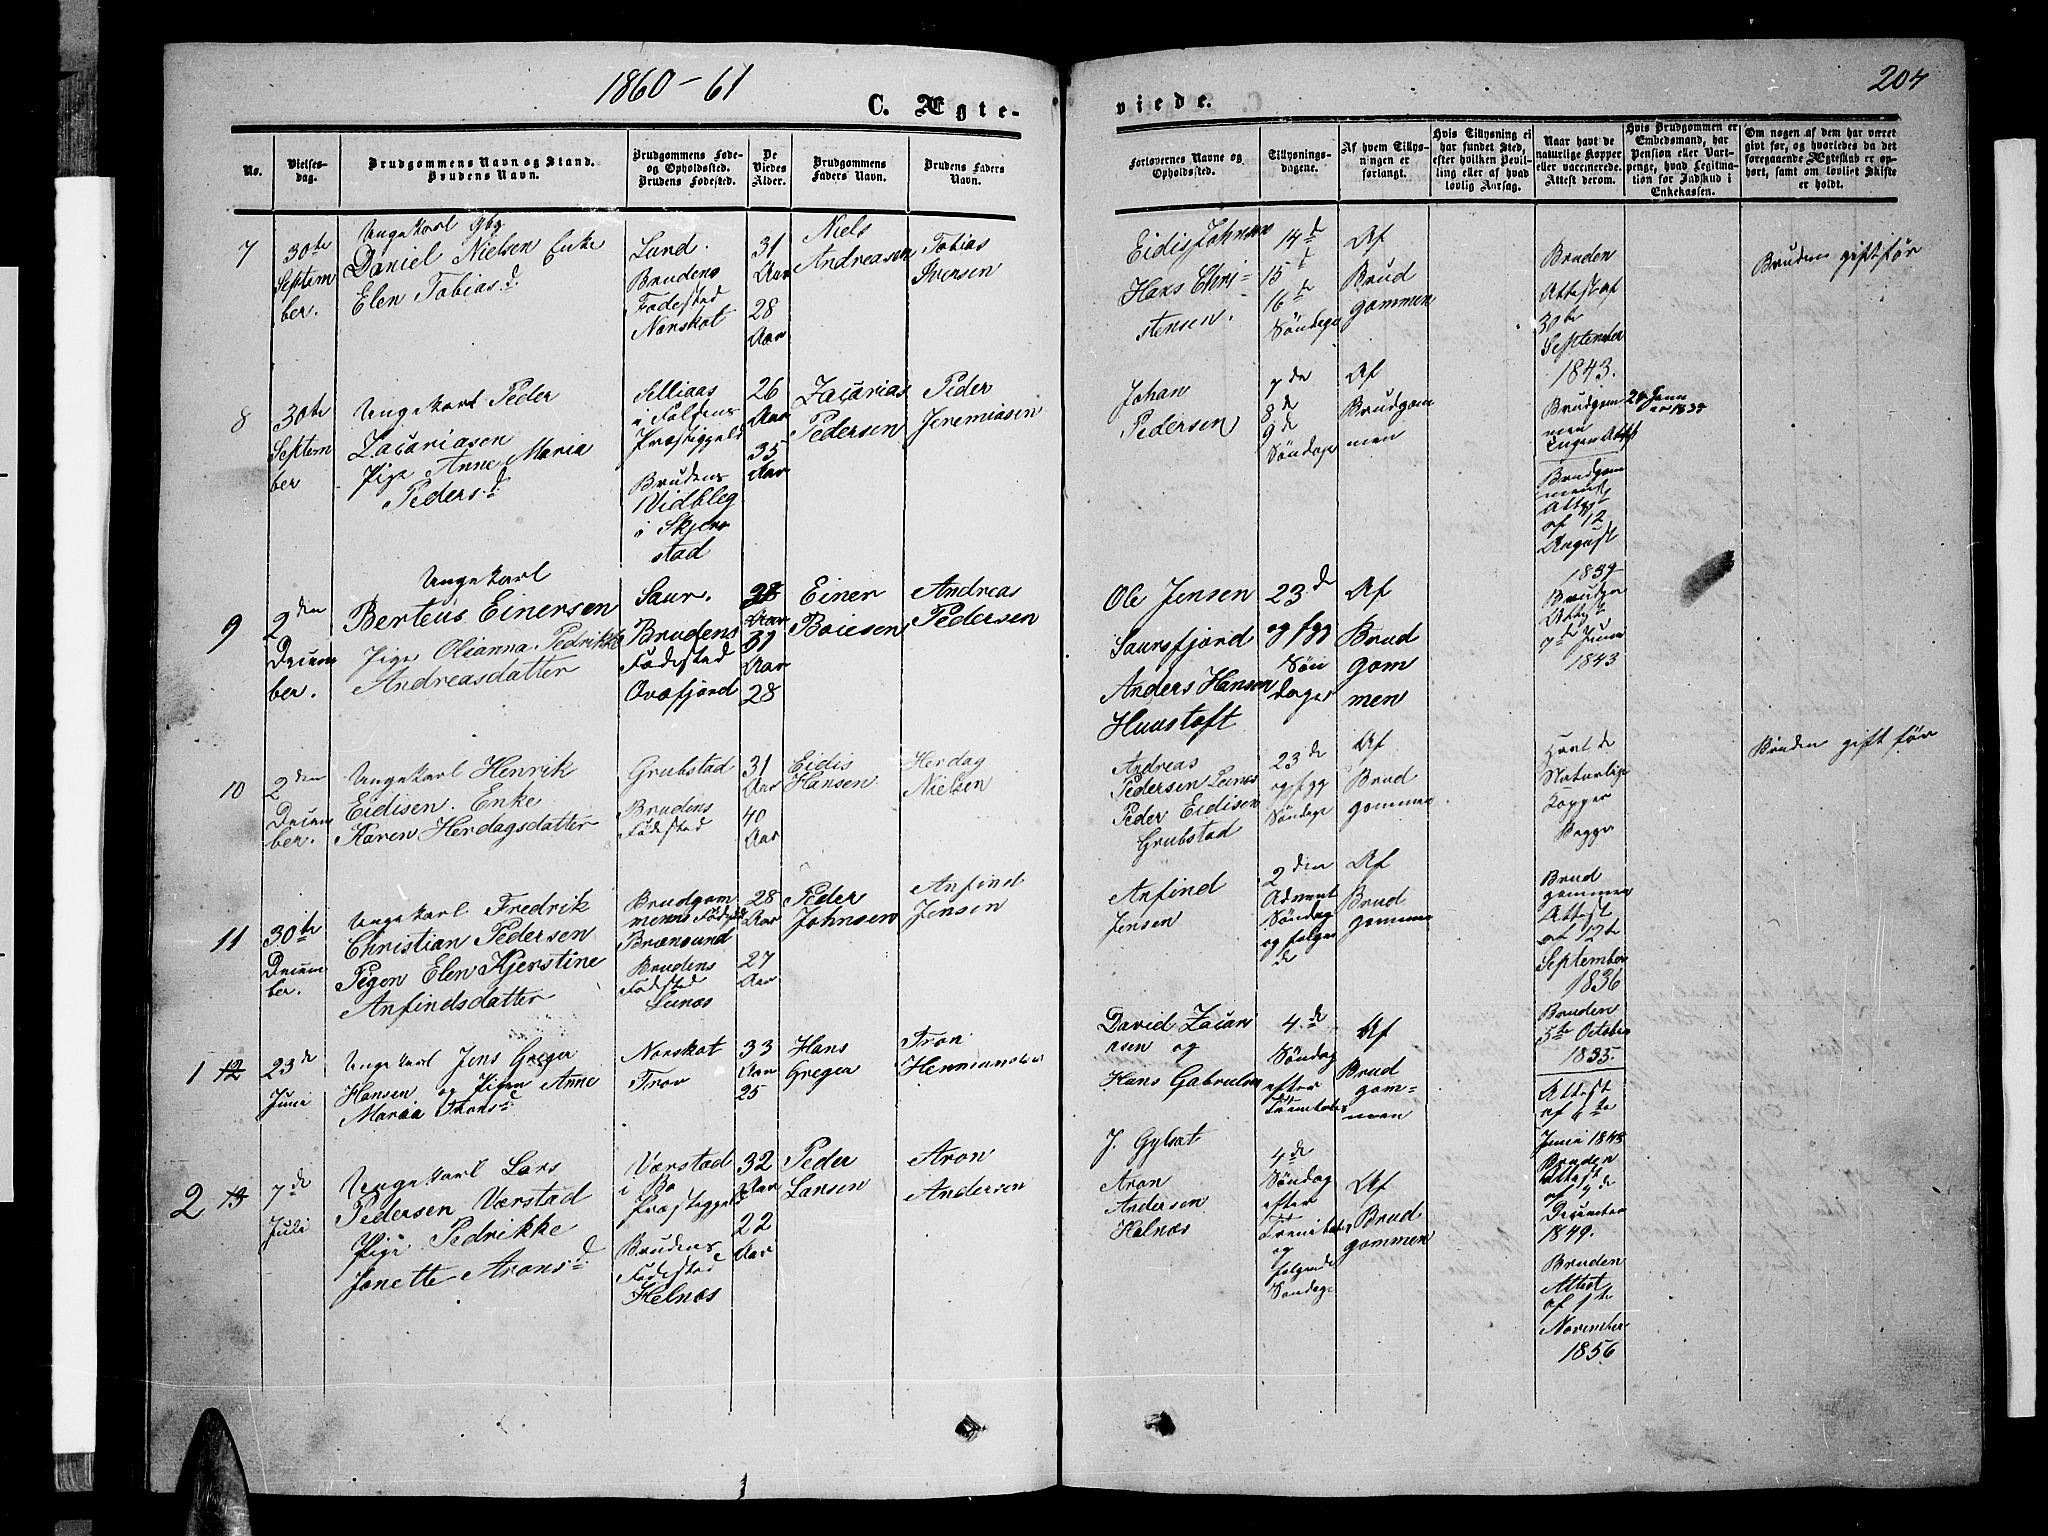 1860-61
204
C. Ægte-
viede.
No.
Vielses-
dag.
Brudgommens Navn og Stand.
Brudens Navn.
Brudgommens Føde-
og Opholdssted.
Brudens Fødested.
De
Viedes
Alder.
Brudgommens
Faders Navn.
Brudens Faders
Navn.
Forlovernes Navne og
Opholdssted.
Tillysnings-
dagene.
Af hvem Tillys-
ningen er
forlangt.
Hvis Tillysning ei
har fundet Sted,
efter hvilken Bevil-
ling eller af hvad
lovlig Aarsag.
Naar havt de
naturlige Kopper
eller vaccinerede.
Attest derom.
Hvis Brudgommen er
Embedsmand, har
Pension eller Vart-
penge, hvad Legitima-
tion for Indskud i
Enkekassen.
Om nogen af dem har været
givt før, og hvorledes da det
foregaaende Ægteskab er op-
hørt, samt om lovligt Skifte
er holdt.
7
30te
Septem
ber.
Ungekarl
Daniel Nielsen Enke
Elen Tobiasd.
Lund.
Brudens
Fødested
Norskot
31
Aar
28
Aar
Niels
Andreasen
Tobias
Svensen
Eidis Johnsen
Hans Chri-
stensen.
14d
15d
16de
Søndage
Af
Brud
gommen
Bruden
Attest af
30te
September
1843.
Bruden gift før
8
30te
Septem
ber
Ungekarl Peder
Zacariasen
Pige Anne Maria
Pedersd.
Selliaas
i Foldens
Præstegjeld
Brudens
Vidbleg
i Skjer
stad
26
Aar
35
Aar
Zacarias
Pedersen
Peder
Jeremiasen
Johan
Pedersen
7de
8d
9d
Søndage
Af
Brudgom
men
Brudgom
men
Ingen Attest
Brudgom
mens
Attest
af 12
August
1839
9
2den
Decem
ber.
Ungekarl
Berteus Einersen
Pige Olianna Pedrikke
Andreasdatter
Saur.
Brudens
Fødested
Ovafjord
Aar
31
Aar
28
Einer
Boiesen
Andreas
Pedersen
Ole Jensen
Saursfjord
Anders Hansen
Huustoft
23d
og fgg
Søn
dager
Af
Brud
gom
men
Brudgn
Attest
7d Juni
1843
10
2den
Decem
ber.
Ungekarl Henrik
Eidisen. Enke
Karen Herdagsdatter
Grubstad
Brudens
Fødested
31
Aar
40
Aar
Eidis
Hansen
Herdag
Nielsen
Andreas
Pedersen Leines
Peder Eidisen
Grubstad
23de
og fgg
Søndage
Af
Brud
gommen
Havt de
Naturlige
Kopper
Begge
Bruden gift før
11
30te
Decem
ber.
Ungekarl Fredrik
Christian Pedersen
Pigen Elen Kjerstine
Anfindsdatter
Brudgom
mens Fødested
Brænsund
Brudens
Fødested
Leines
28
Aar
27
Aar
Peder
Johnsen
Anfind
Jensen
Anfind
Jensen
2den
Advent
Søndag
og følgen
de
Af
Brud
gommen
Brud
gommen
Attest
af 12te
September
1836
Bruden
5te October
1835.
1 12
23de
Juni
Ungekarl Jens Greger
Hansen og Pigen Anne
Maria Tronsd.
Norskot
Trov
33
Aar
25
Hans
Greger
Tron
David Zacari
asen og
Hans Gabrielsen
4.de
Søndag
efter
Af
Brud
gom-
men
Attest
af 6te
Juni 1848
Bruden
Attest
af 7de
December
1849.
2 13
7de
Juli
Ungekarl Lars
Pedersen Værstad
Pige Pedrikke
Jonette Aronsd.
Værstad
i Bø
Præstegjeld
Brudens
Fødested
Helnæs
32
Aar
22
Aar
Peder
Larsen
Aron
Andersen
J. Gylset
Aron
Andersen
Helnæs
4de
Søndag
efter
Trenitatis
og
følgende
Søndage
Af
Brud
gommen
Bruden
Attest
af 1te
November
1856